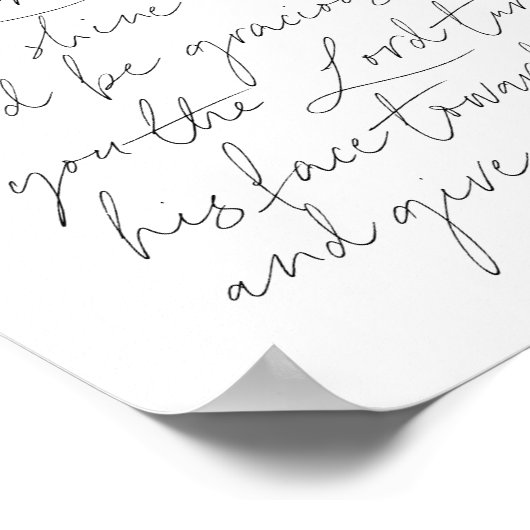 shine
d be gracious
you the Lord turn
his face toward
and give